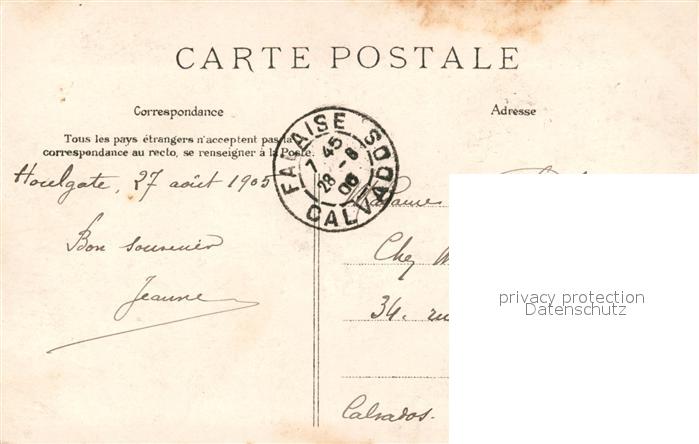 CARTE POSTALE
Correspondance
Adresse
Tous les pays étrangers n'acceptent pas la
correspondance au recto, se renseigner à la Poste.
FALAISE
7 45
28 - 8
06
CALVADOS
Houlgate, 27 août 1905
Bon souvenir
Jeanne
Madame
Chez
34. ru
Calvados.
privacy protection
Datenschutz